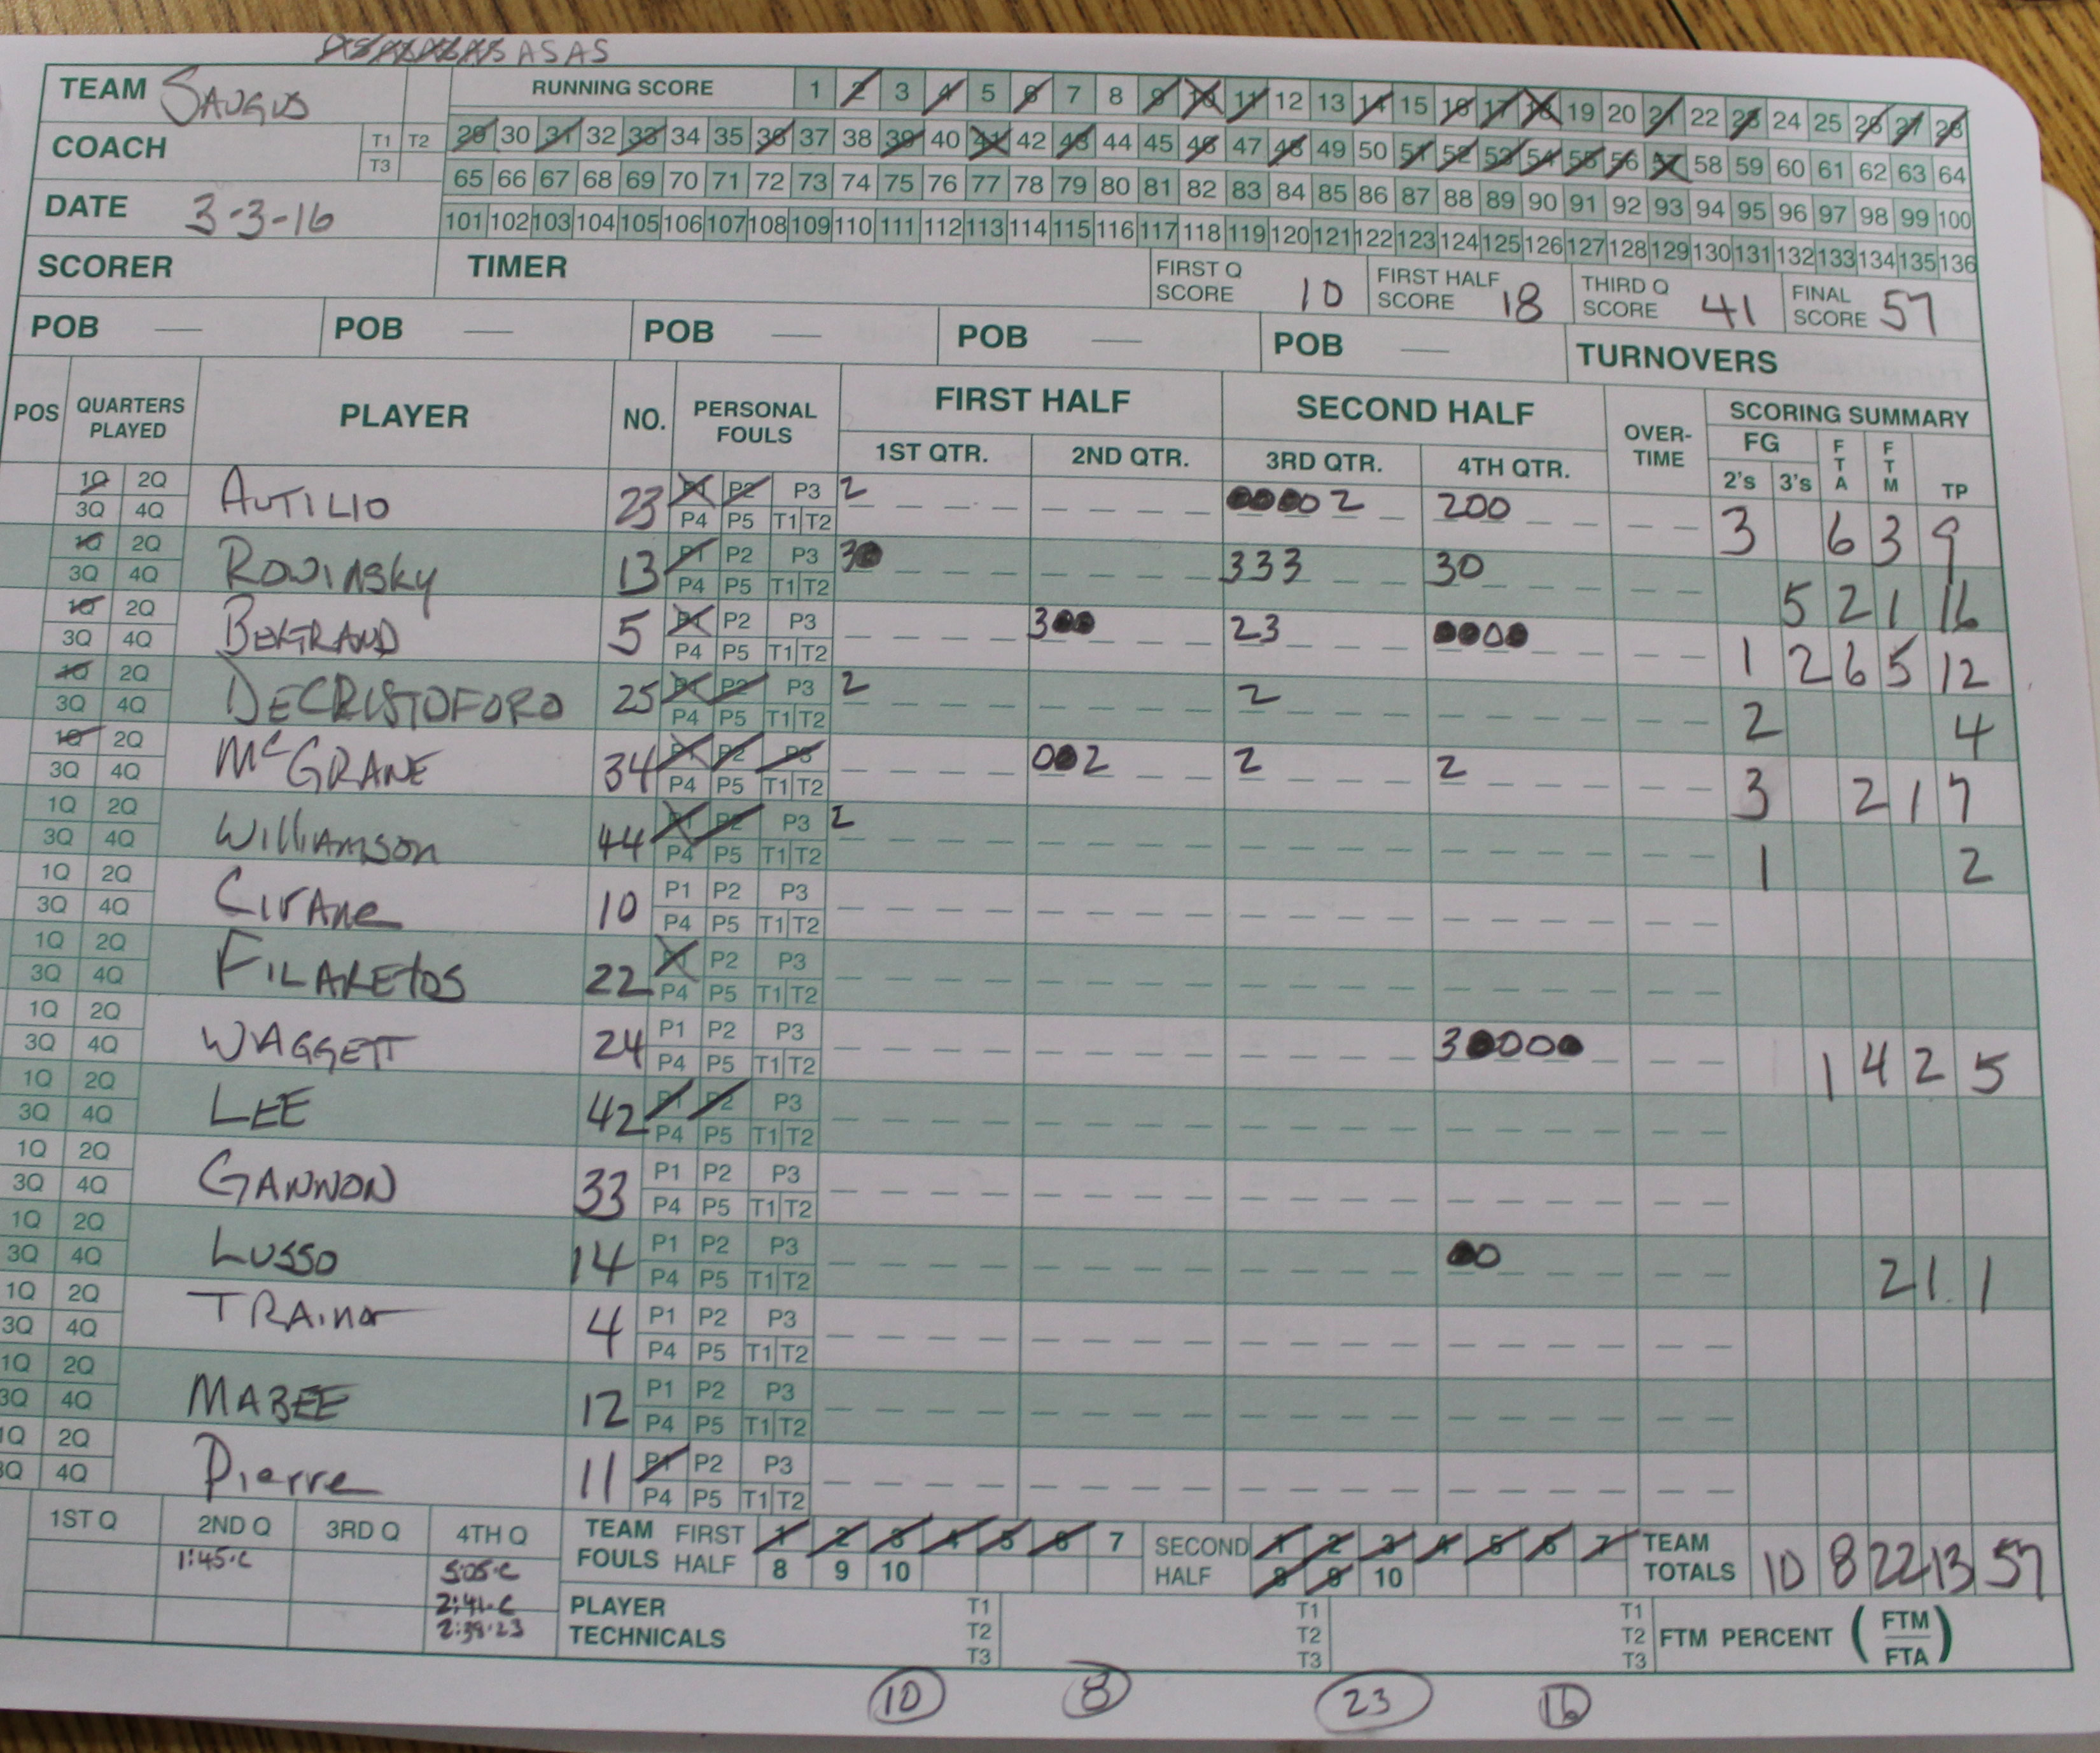 ASAS
TEAM SAUGUS RUNNING SCORE 1 2 3 4 5 6 7 8 9 10 11 12 13 14 15 16 17 18 19 20 21 22 23 24 25 26 27 28
COACH T1 T2 T3 29 30 31 32 33 34 35 36 37 38 39 40 41 42 43 44 45 46 47 48 49 50 51 52 53 54 55 56 57 58 59 60 61 62 63 64
65 66 67 68 69 70 71 72 73 74 75 76 77 78 79 80 81 82 83 84 85 86 87 88 89 90 91 92 93 94 95 96 97 98 99 100
DATE 3-3-16 101 102 103 104 105 106 107 108 109 110 111 112 113 114 115 116 117 118 119 120 121 122 123 124 125 126 127 128 129 130 131 132 133 134 135 136
SCORER TIMER FIRST Q SCORE 10 FIRST HALF SCORE 18 THIRD Q SCORE 41 FINAL SCORE 57
POB — POB — POB — POB — POB — TURNOVERS
POS QUARTERS PLAYED PLAYER NO. PERSONAL FOULS FIRST HALF SECOND HALF OVER-TIME SCORING SUMMARY
1ST QTR. 2ND QTR. 3RD QTR. 4TH QTR. FG 2's 3's FTA FTM TP
1Q 2Q AUTILIO 23 P1 P2 P3 2 00002 200 3 6 3 9
3Q 4Q P4 P5 T1 T2
1Q 2Q ROWINSKY 13 P1 P2 P3 30 333 30 5 2 1 16
3Q 4Q P4 P5 T1 T2
1Q 2Q BERTRAND 5 P1 P2 P3 300 23 0000 1 2 6 5 12
3Q 4Q P4 P5 T1 T2
1Q 2Q DECRISTOFORO 25 P1 P2 P3 2 2 2 4
3Q 4Q P4 P5 T1 T2
1Q 2Q McGRANE 34 P1 P2 P3 002 2 2 3 2 1 7
3Q 4Q P4 P5 T1 T2
1Q 2Q Williamson 44 P1 P2 P3 2 1 2
3Q 4Q P4 P5 T1 T2
1Q 2Q 10 P1 P2 P3
3Q 4Q P4 P5 T1 T2
1Q 2Q FILARETOS 22 P1 P2 P3
3Q 4Q P4 P5 T1 T2
1Q 2Q WAGGETT 24 P1 P2 P3 30000 1 4 2 5
3Q 4Q P4 P5 T1 T2
1Q 2Q LEE 42 P1 P2 P3
3Q 4Q P4 P5 T1 T2
1Q 2Q GANNON 33 P1 P2 P3
3Q 4Q P4 P5 T1 T2
1Q 2Q LUSSO 14 P1 P2 P3 00 2 1 1
3Q 4Q P4 P5 T1 T2
1Q 2Q TRAINOR 4 P1 P2 P3
3Q 4Q P4 P5 T1 T2
1Q 2Q MABEE 12 P1 P2 P3
3Q 4Q P4 P5 T1 T2
1Q 2Q Pierre 11 P1 P2 P3
3Q 4Q P4 P5 T1 T2
1ST Q 2ND Q 3RD Q 4TH Q TEAM FOULS FIRST HALF 1 2 3 4 5 6 7 SECOND HALF 1 2 3 4 5 6 7 TEAM TOTALS 10 8 22 13 57
1:45.C 5:05.C 8 9 10 8 9 10
2:41.C PLAYER TECHNICALS T1 T1 T1
2:39.23 T2 T2 T2 FTM PERCENT (FTM/FTA)
T3 T3 T3
10 8 23 16